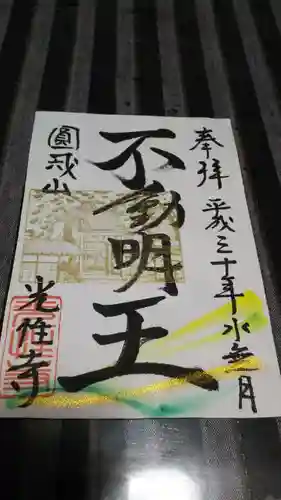 奉拝 平成三十年水無月
不動明王
圓成山
光性寺